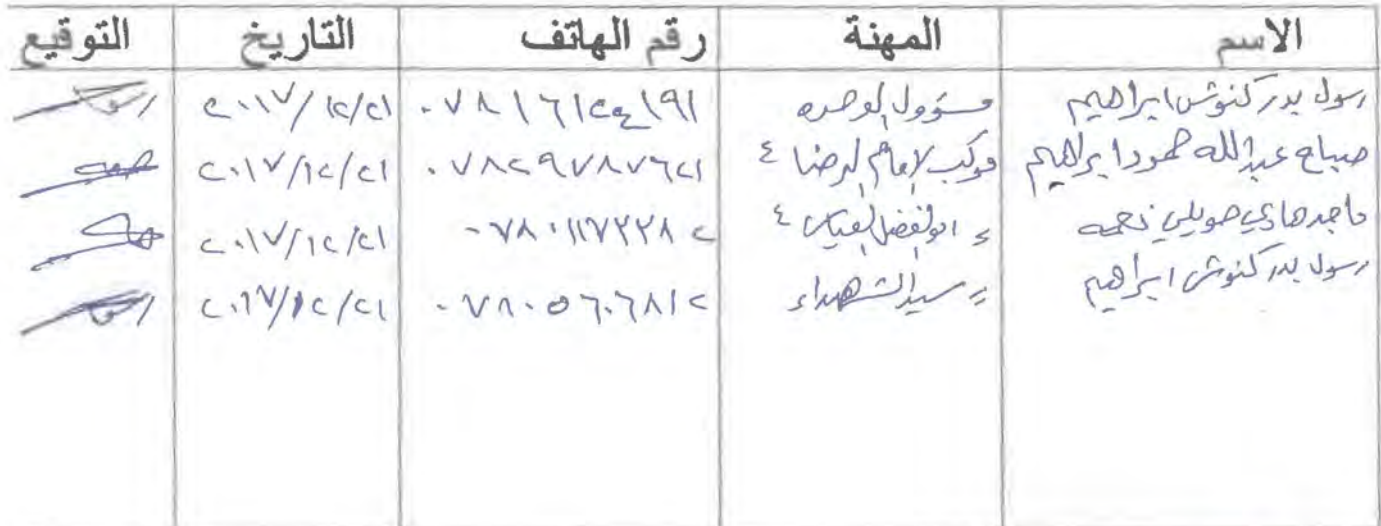 الاسم المهنة رقم الهاتف التاريخ التوقيع
رسول بدر كنوش ابراهيم مسؤول الوحده ٠٧٨١٦١٢٤١٩١ ٢٠١٧/١٢/٢١
صباح عبدالله حمود ابراهيم موكب الامام الرضا ع ٠٧٨٢٩٧٨٧٦٢١ ٢٠١٧/١٢/٢١
ماجد هادي صويلي نعمه = ابو الفضل العباس ع ٠٧٨٠١١٧٢٢٨٢ ٢٠١٧/١٢/٢١
رسول بدر كنوش ابراهيم = سيد الشهداء ٠٧٨٠٥٦٠٦٨١٢ ٢٠١٧/١٢/٢١